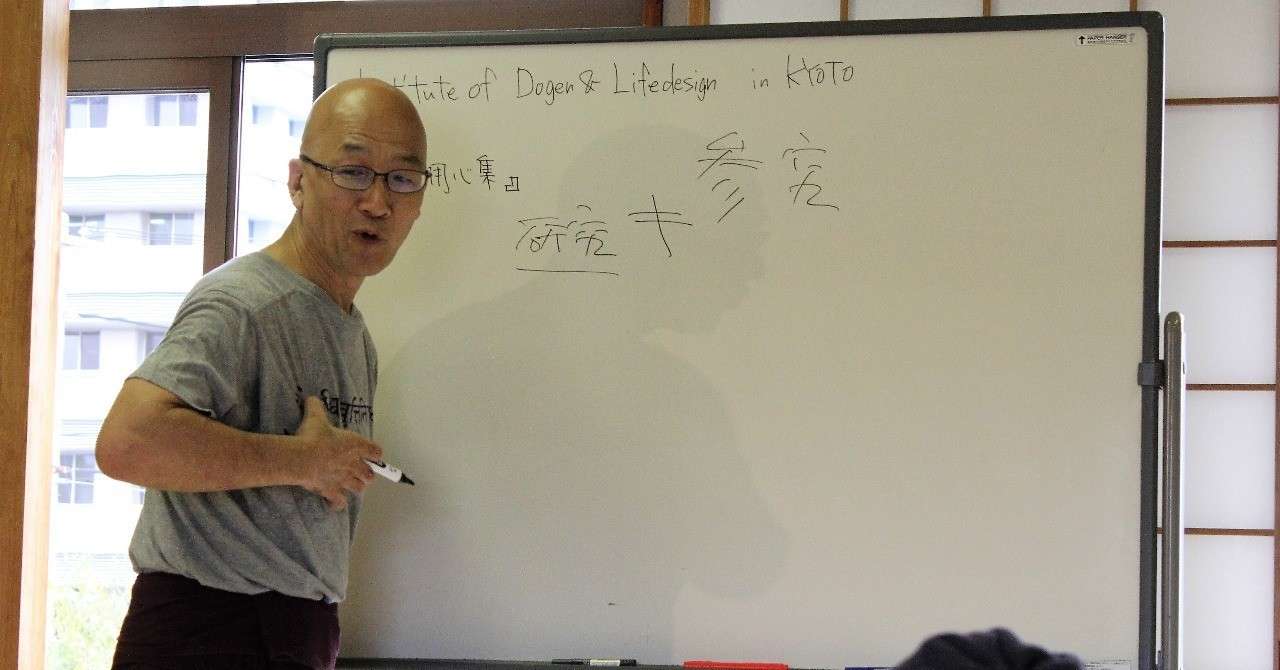 titute of Dogen & Lifedesign in KYOTO
参究
用心集
研究 ≠